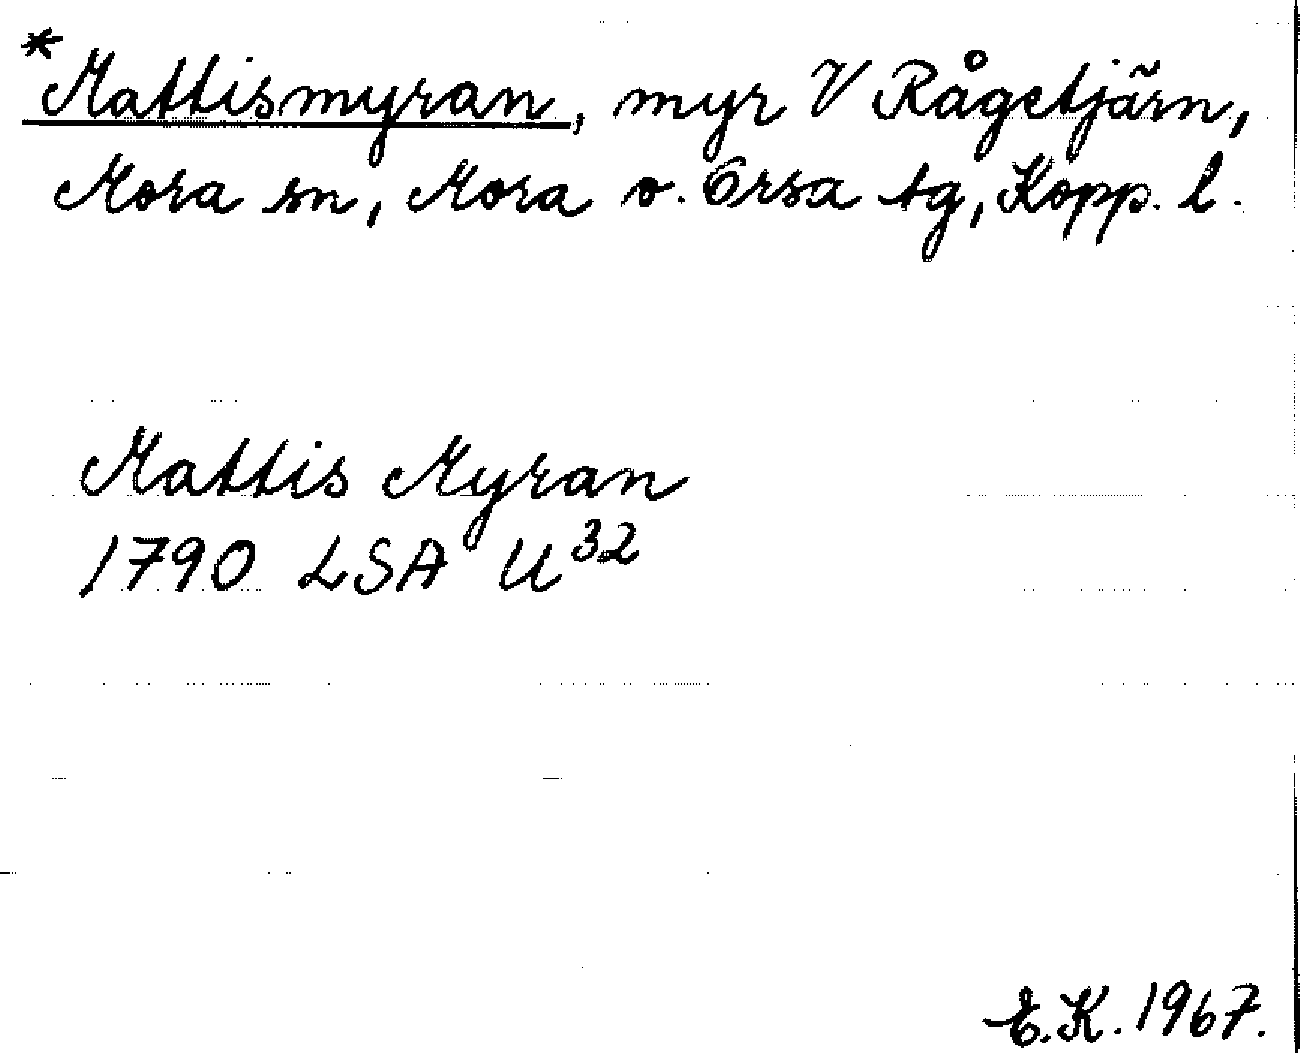 *Mattismyran, myr V Rågetjärn,
Mora sn, Mora o. Orsa tg, Kopp. l.
Mattis Myran
1790 LSA U³²
E.K. 1967.